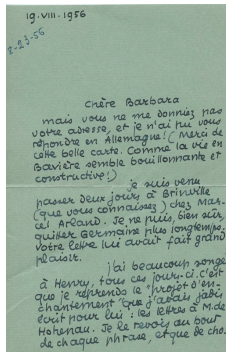 19.VIII-1956
8-23-56
Chère Barbara
mais vous ne me donniez pas
votre adresse, et je n'ai pu vous
répondre en Allemagne! (Merci de
cette belle carte. Comme la vie en
Bavière semble bouillonnante et
constructive!)
je suis venu
passer deux jours à Brinville
(que vous connaissez) chez Mar-
cel Arland. Je ne puis, bien sûr,
quitter Germaine plus longtemps.
Votre lettre lui avait fait grand
plaisir.
j'ai beaucoup songé
à Henry, tous ces jours-ci. c'est
que je reprends le "projet d'en-
chantement" que j'avais jadis
écrit pour lui: les lettres à M. de
Hohenau. Je le revois au bout
de chaque phrase, et que de cho-